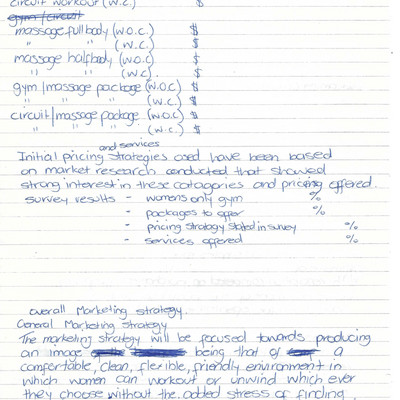 circuit workout (W.C.) $
gym/circuit
massage full body (W.O.C) $
" " (W.C.) $
massage half body (W.O.C) $
" " (W.C). $
gym/massage package (W.O.C) $
(W.C) $
circuit/massage package (W.O.C) $
" " " (W.C.) $
and services
Initial pricing strategies used have been based
on market research conducted that showed
strong interest in these catagories and pricing offered.
survey results - womens only gym %
- packages to offer %
- pricing strategy stated in survey %
- services offered %
overall Marketing strategy.
General Marketing Strategy
The marketing strategy will be focused towards producing
an image being that of a
comfortable, clean, flexible, friendly environment in
which women can workout or unwind which ever
they choose without the added stress of finding